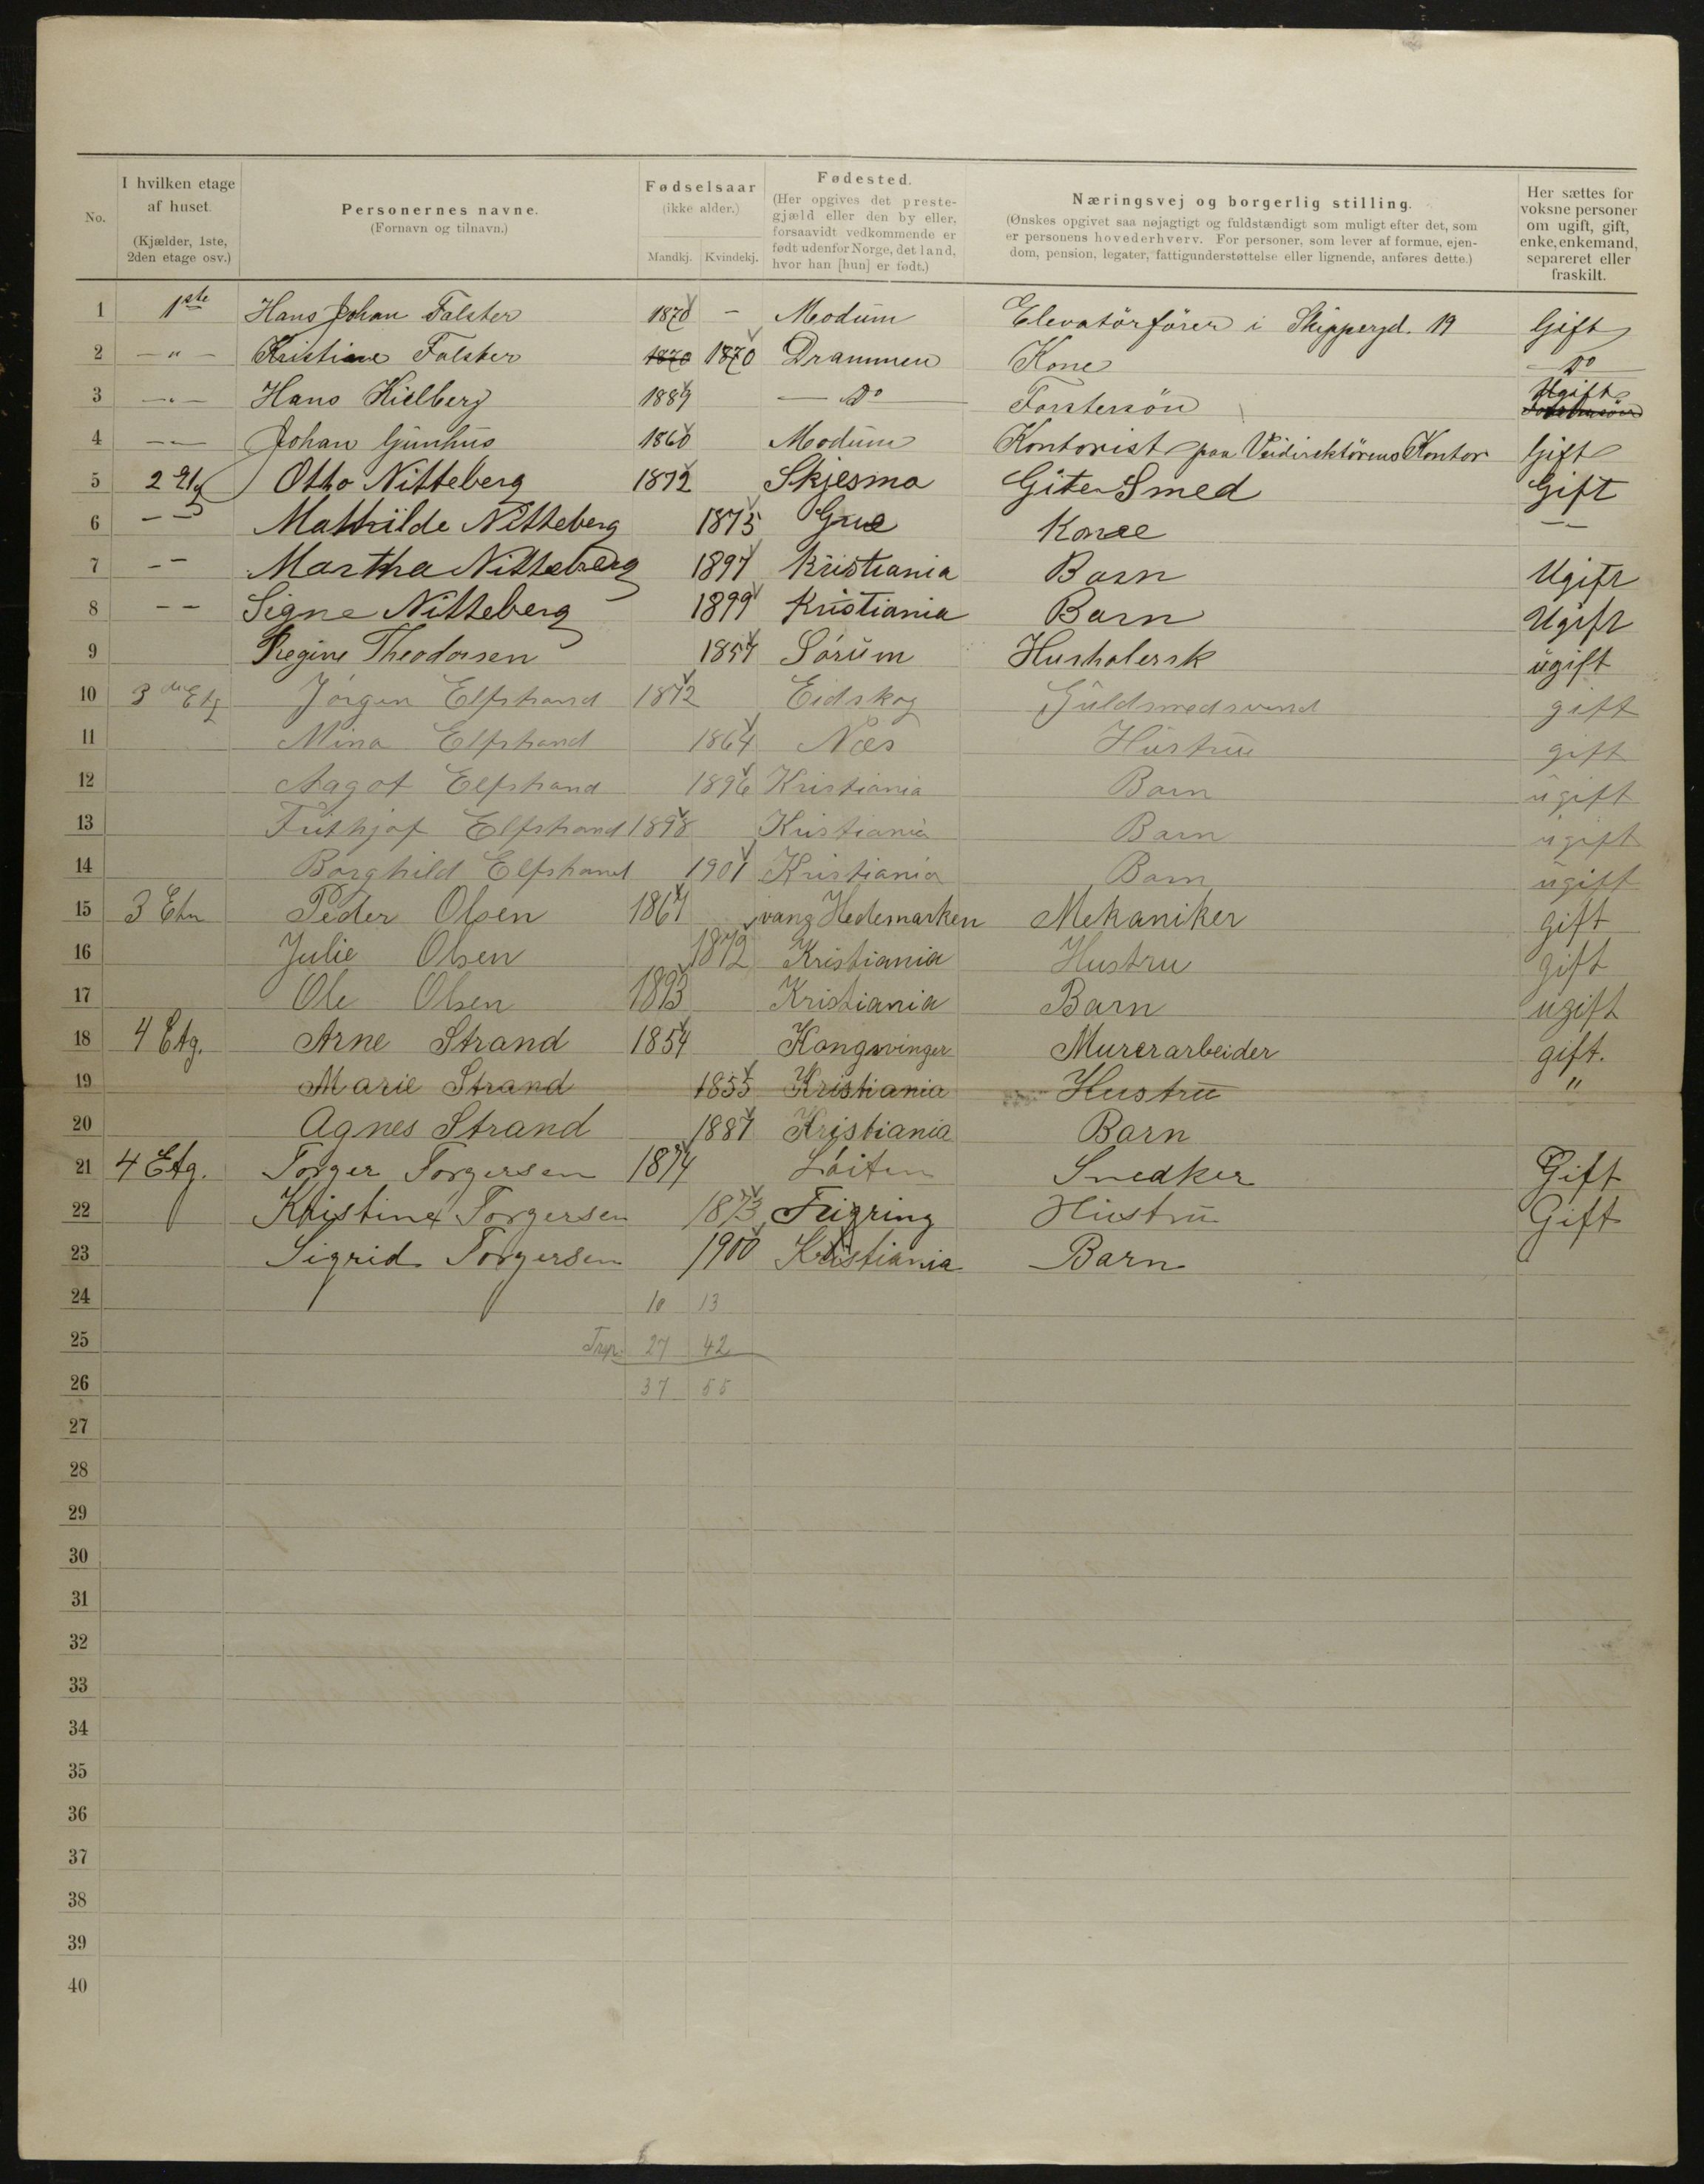 No.
I hvilken etage af huset. (Kjælder, 1ste, 2den etage osv.)
Personernes navne. (Fornavn og tilnavn.)
Fødselsaar (ikke alder.) Mandkj. Kvindekj.
Fødested. (Her opgives det prestegjæld eller den by eller, forsaavidt vedkommende er født udenfor Norge, det land, hvor han [hun] er født.)
Næringsvej og borgerlig stilling. (Ønskes opgivet saa nøjagtigt og fuldstændigt som muligt efter det, som er personens hovederhverv. For personer, som lever af formue, ejendom, pension, legater, fattigunderstøttelse eller lignende, anføres dette.)
Her sættes for voksne personer om ugift, gift, enke, enkemand, separeret eller fraskilt.
1 1ste Hans Johan Falster 1870 - Modum Elevatörförer i Skippergd. 19 Gift
2 - " - Kristiane Falster 1870 1870 Drammen Kone Do
3 - " - Hans Kielberg 1889 Do Forstersön Ugift
4 - - Johan Gunhus 1860 Modum Kontorist paa Veidirektörens Kontor Gift
5 2 Etg Otto Nitteberg 1872 Skjesmo Gjter Smed Gift
6 - - Mathilde Nitteberg 1875 Grue Kone - -
7 - - Martha Nitteberg 1897 Kristiania Barn Ugift
8 - - Signe Nitteberg 1899 Kristiania Barn Ugift
9 Regine Theodorsen 1857 Sórum Husholersk ugift
10 3 die Etg Jörgen Elfstrand 1872 Eidskog Guldsmedsvend gift
11 Mina Elfstrand 1864 Næs Hustru gift
12 Aagot Elfstrand 1896 Kristiania Barn ugift
13 Frithjof Elfstrand 1898 Kristiania Barn ugift
14 Borghild Elfstrand 1901 Kristiania Barn ugift
15 3 Etn Peder Olsen 1867 vang Hedemarken Mekaniker gift
16 Julie Olsen 1872 Kristiania Hustru gift
17 Ole Olsen 1893 Kristiania Barn ugift
18 4 Etg. Arne Strand 1854 Kongsvinger Murerarbeider gift.
19 Marie Strand 1855 Kristiania Hustru "
20 Agnes Strand 1887 Kristiania Barn
21 4 Etg. Torger Torgersen 1874 Löiten Snedker Gift
22 Kristine Torgersen 1873 Frigring Hustru Gift
23 Sigrid Torgersen 1900 Kristiania Barn
24 10 13
25 Trp. 27 42
26 37 55
27
28
29
30
31
32
33
34
35
36
37
38
39
40